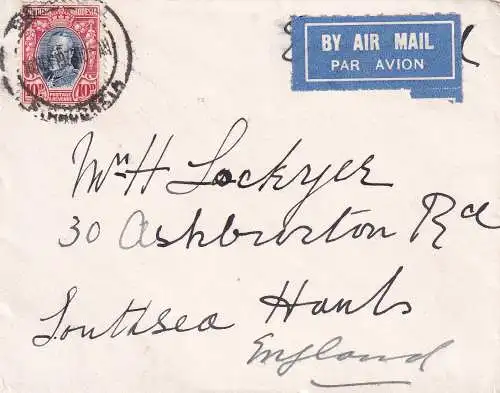 SOUTHERN RHODESIA
10D POSTAGE & REVENUE 10D
BY AIR MAIL
PAR AVION
Mr H Lockyer
30 Ashburton Rd
Southsea Hants
England